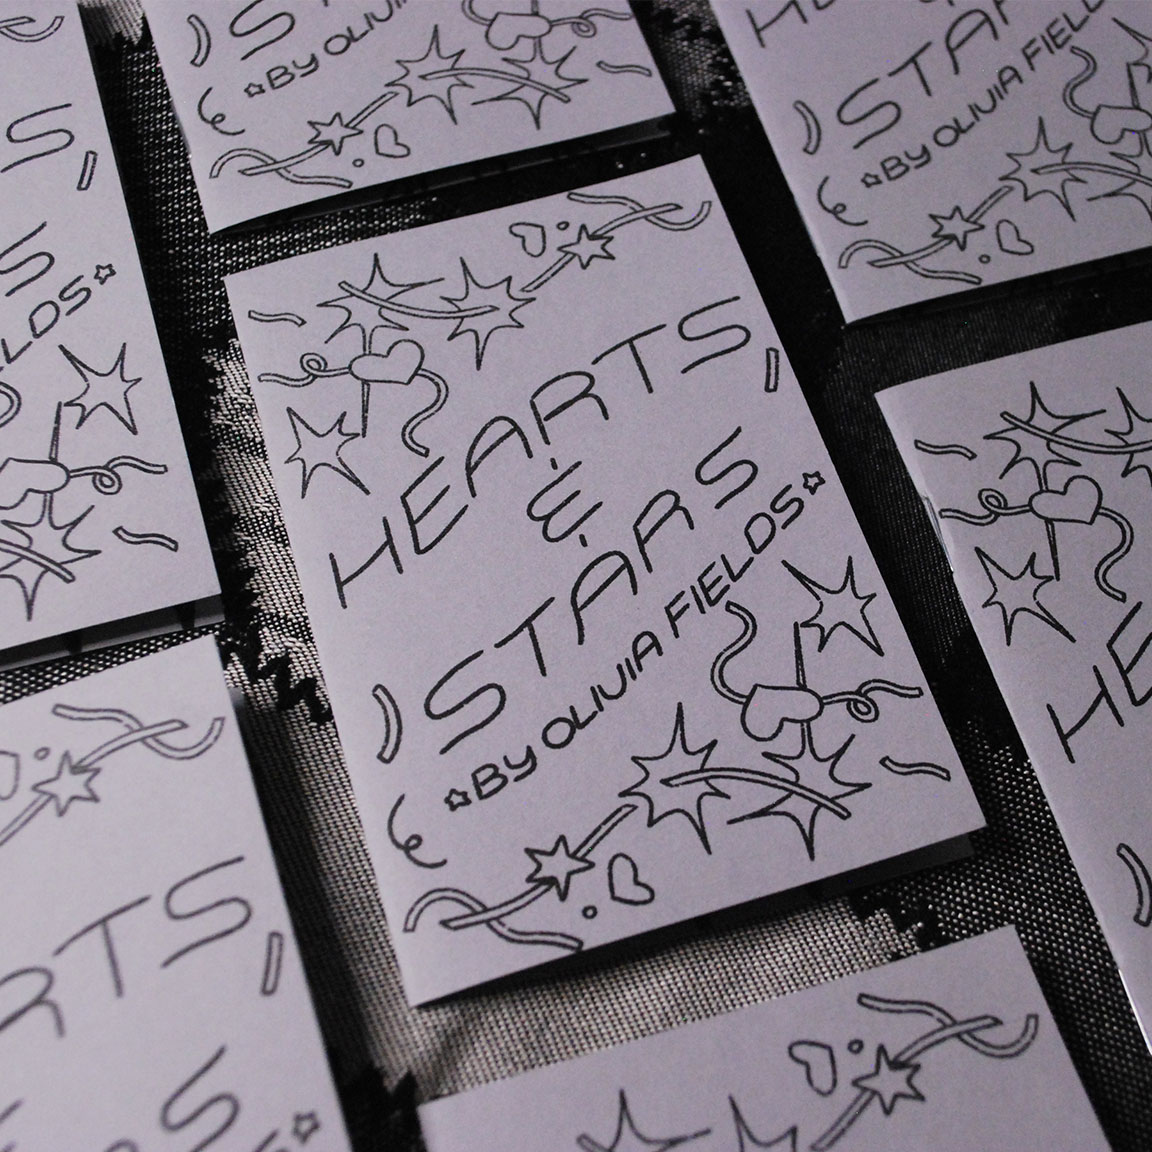 S
BY OLIVI
HE
STAR
BY OLIVIA FIELD
S
S
LDS
HEARTS
&
STARS
BY OLIVIA FIELDS
HE
RTS
RS
S